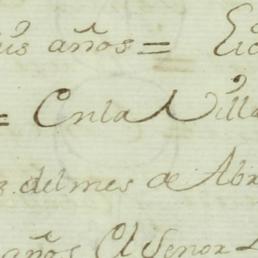 años =
= Enla Villa
del mes de Abr
años El Señor